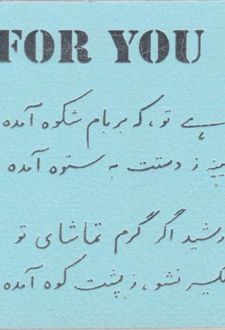 FOR YOU
ے تو، که بر بام شکوه آمده
ز دستت به ستوه آمده
رشید اگر گرم تماشای تو
نشو، ز پشت کوه آمده